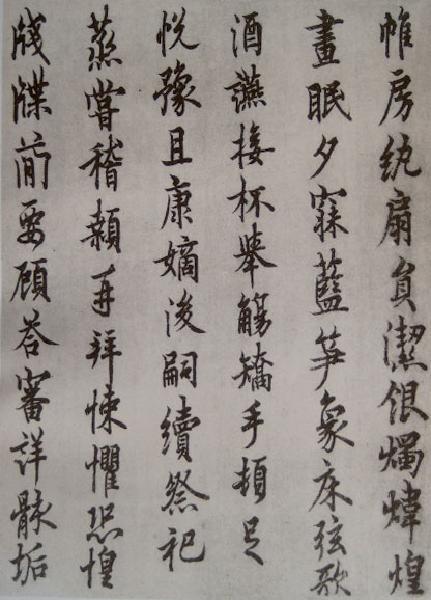 帷房紈扇員潔銀燭煒煌
晝眠夕寐藍笋象床弦歌
酒讌接杯舉觴矯手頓足
悅豫且康嫡後嗣續祭祀
蒸嘗稽顙再拜悚懼恐惶
牋牒簡要顧荅審詳骸垢